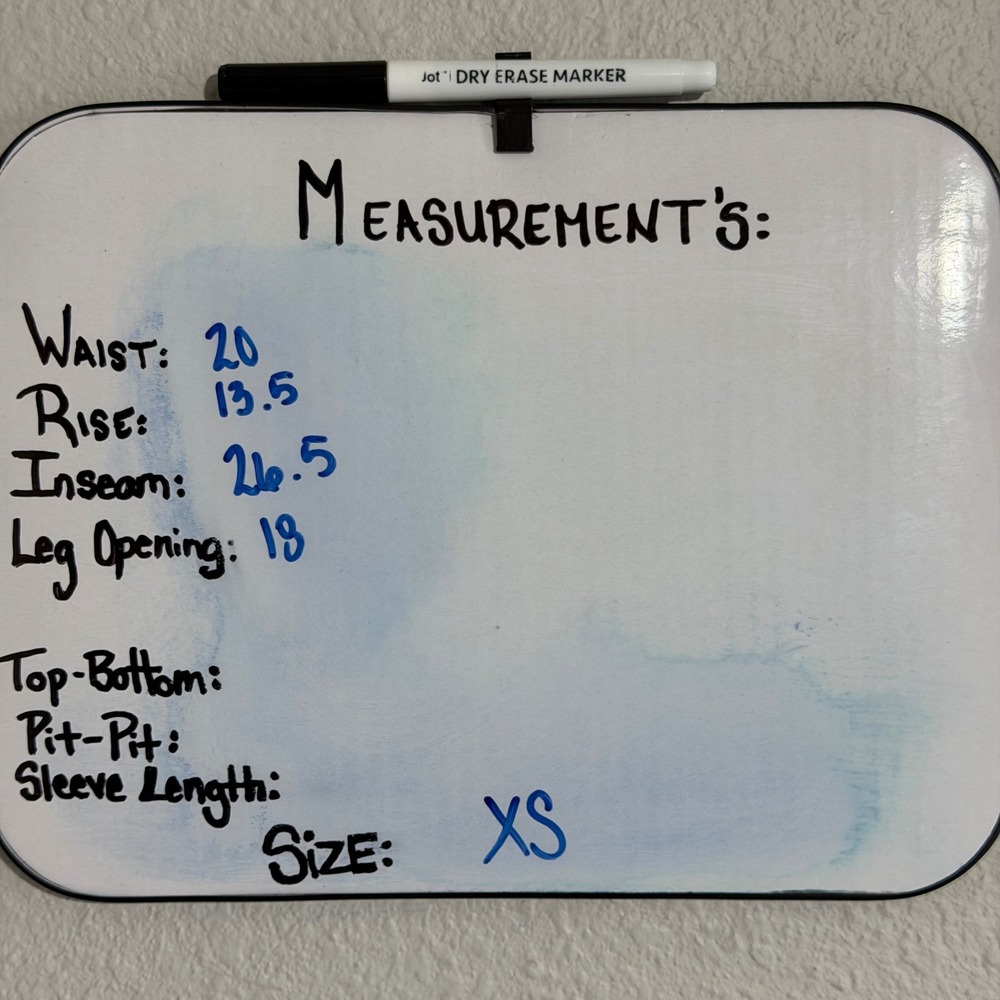 Jot DRY ERASE MARKER
MEASUREMENT'S:
WAIST: 20
RISE: 13.5
Inseam: 26.5
Leg Opening: 18
Top-Bottom:
Pit-Pit:
Sleeve Length:
SiZE: XS